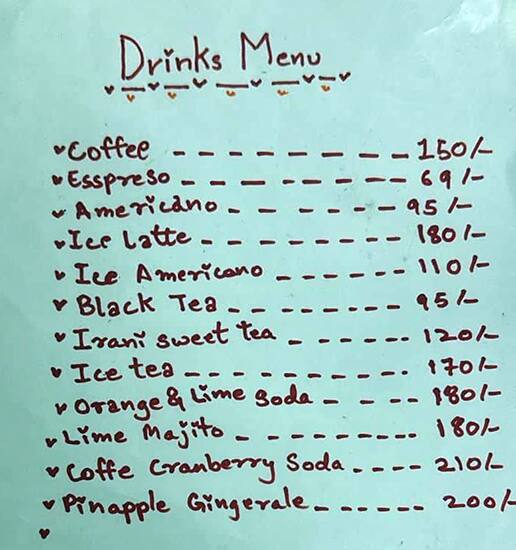 Drinks Menu
Coffee - - - - - - - - - 150/-
Esspreso - - - - - - - - - 69/-
Americano - - - - - - 95/-
Ice Latte - - - - - - - - 180/-
Ice Americano - - - - - - 110/-
Black Tea - - - - - - - - 95/-
Irani sweet tea - - - - - - 120/-
Ice tea - - - - - - - - - - 170/-
Orange & Lime Soda - - - - 180/-
Lime Majito - - - - - - - - 180/-
Coffe Cranberry Soda - - - - 210/-
Pinapple Gingerale - - - - - - 200/-